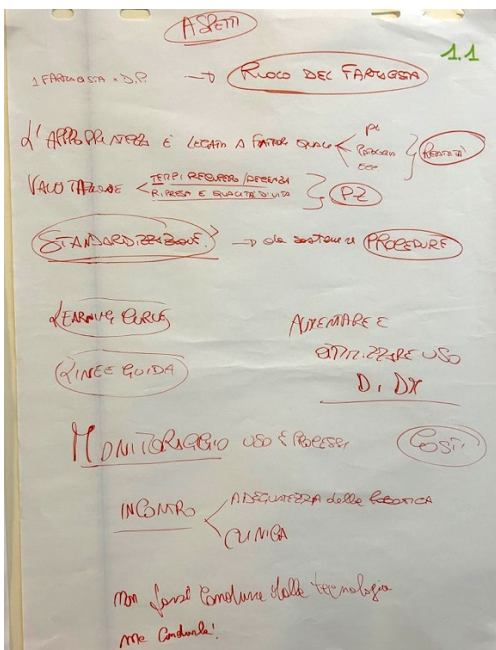 ASPETTI
1.1
1 FARMACISTA x D.P. → RUOLO DEL FARMACISTA
L'APPROPRIATEZZA È LEGATA A FATTORI QUALI
VALUTAZIONE
TEMPI RECUPERO/DEGENZA
RIPRESA E QUALITÀ DI VITA
PZ
STANDARDIZZAZIONE → da sostenere PROCEDURE
LEARNING CURVE
LINEE GUIDA
AUMENTARE E
OTTIMIZZARE USO
DI DX
MONITORAGGIO USO E PROCESSI
COSTI
INCONTRO
ADEGUATEZZA della ROBOTICA
CLINICA
non farsi condurre dalla tecnologia
ma condurla!